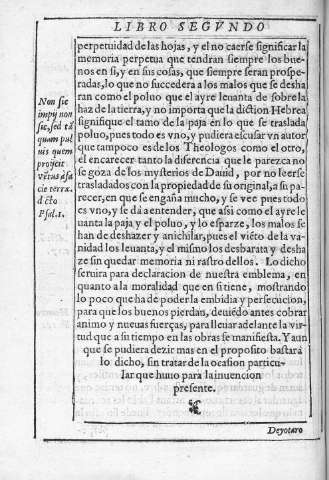 LIBRO SEGVNDO
perpetuidad de las hojas, y el no caerse significar la
memoria perpetua que tendran siempre los bue-
nos en si, y en sus cosas, que siempre seran prospe-
radas, lo que no succedera a los malos que se desha
ran como el poluo que el ayre leuanta de sobre la
haz de la tierra, y no importa que la diction Hebrea
signifique el tamo de la paja en lo que se traslada
poluo, pues todo es vno, y pudiera escusar vn autor
que tampoco es de los Theologos como el otro,
el encarecer tanto la diferencia que le parezca no
se goza de los mysterios de Dauid, por no leerse
trasladados con la propiedad de su original, a su pa-
recer, en que se engaña mucho, y se vee pues todo
es vno, y se da a entender, que assi como el ayre le
uanta la paja y el poluo, y lo esparze, los malos se
han de deshazer y anichilar, pues el viẽto de la va-
nidad los leuanta, y el mismo los desbarata y desha
ze sin quedar memoria ni rastro dellos. Lo dicho
seruira para declaracion de nuestra emblema, en
quanto a la moralidad que en si tiene, mostrando
lo poco que ha de poder la embidia y persecucion,
para que los buenos pierdan, deuiẽdo antes cobrar
animo y nueuas fuerças, para lleuar adelante la vir-
tud que a su tiempo en las obras se manifiesta. Y aun
que se pudiera dezir mas en el proposito bastara
lo dicho, sin tratar de la ocasion particu-
lar que huuo para la inuencion
presente.
Non sic
impij non
sic, sed tã
quam pul
uis quem
proijcit
vẽtus à fa
cie terræ.
Psal. 1.
Deyotaro